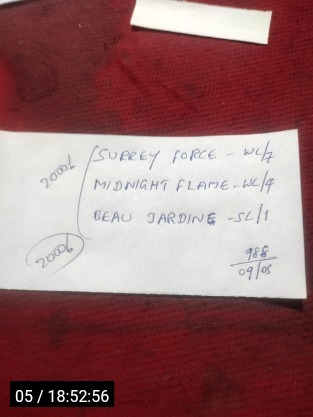 2000/
SURREY FORCE - WL/7
MIDNIGHT FLAME - WL/4
BEAU JARDINE - SL/1
2000/
988
09/05
05 / 18:52:56